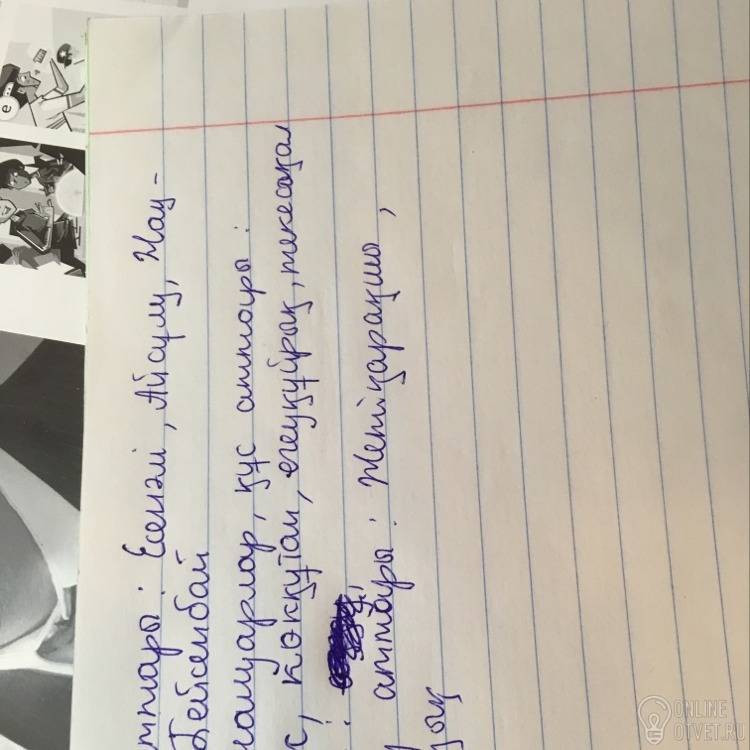 аттары: Есенәлі, Айсұлу, Нау-
Бейсенбай
нануарлар, құс аттары:
с, көкқұтан, егеуқұйрық, текесақал
аттары: Жетіқарақшы,
ық
ONLINE
OTVET.RU
e